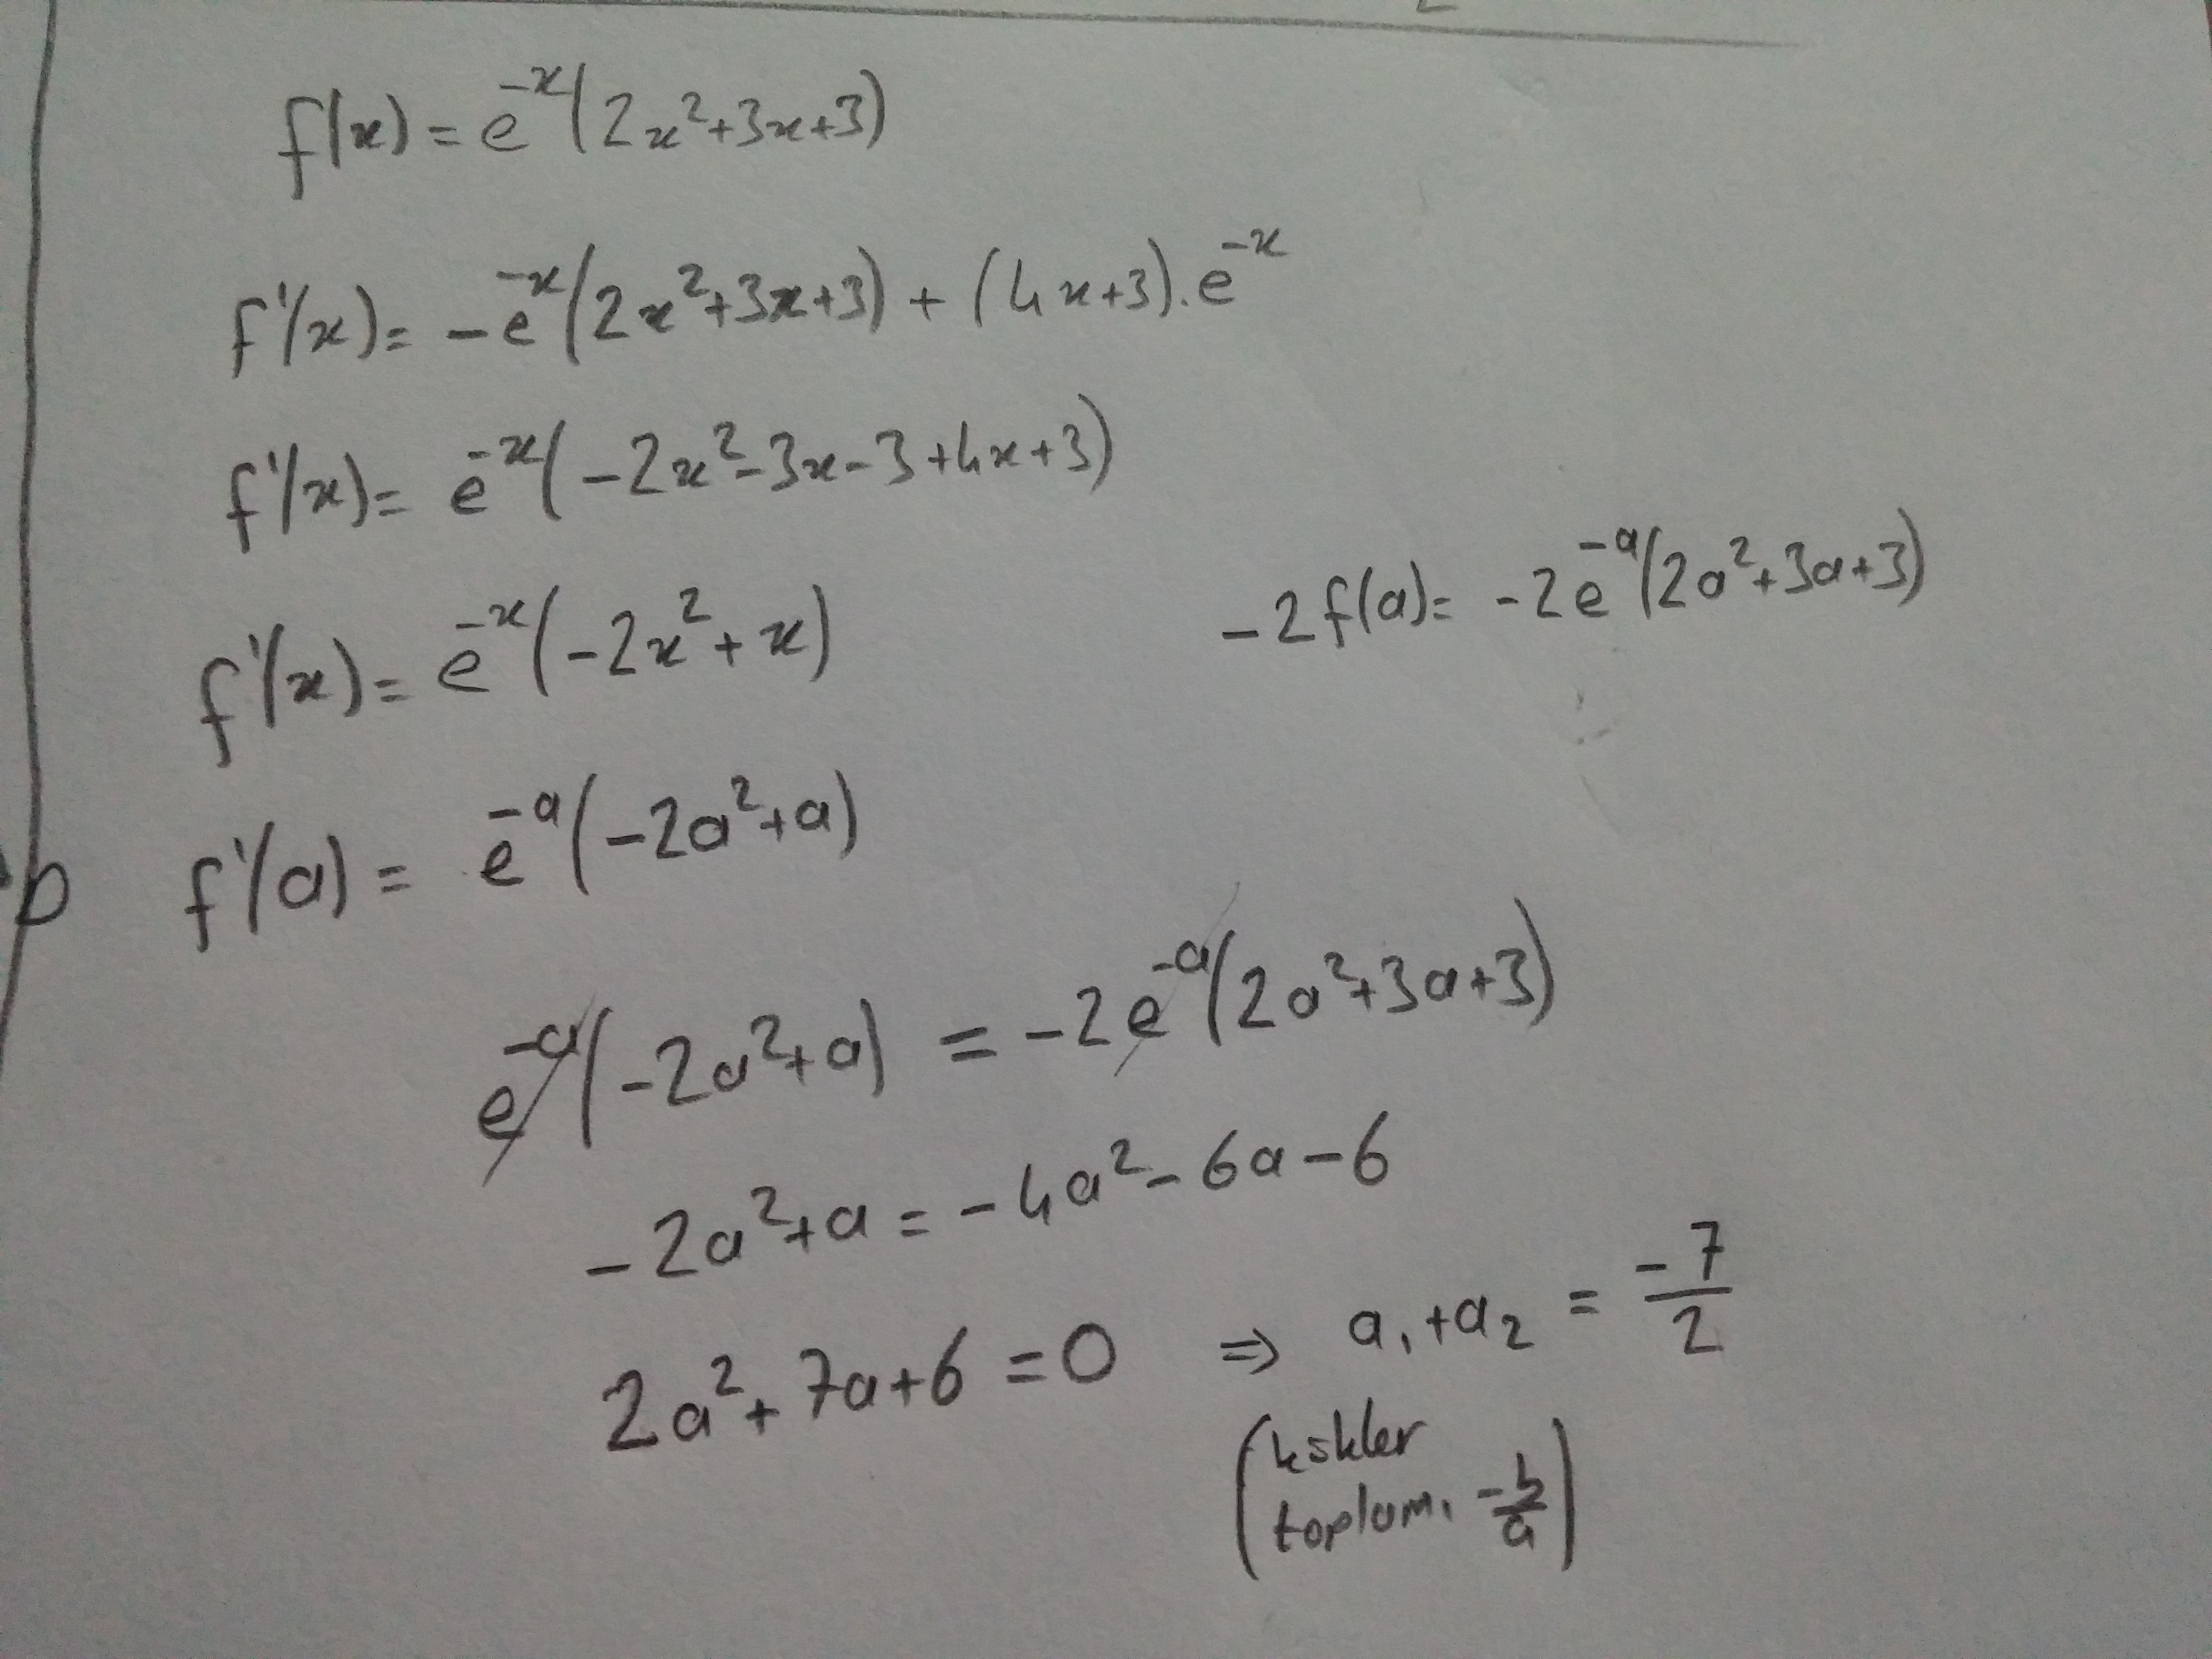 f(x) = e^{-x}(2x²+3x+3)
f'(x) = -e^{-x}(2x²+3x+3) + (4x+3).e^{-x}
f'(x) = e^{-x}(-2x²-3x-3+4x+3)
f'(x) = e^{-x}(-2x²+x)
-2f(a) = -2e^{-a}(2a²+3a+3)
f'(a) = e^{-a}(-2a²+a)
e^{-a}(-2a²+a) = -2e^{-a}(2a²+3a+3)
-2a²+a = -4a²-6a-6
2a²+7a+6=0 ⇒ a₁+a₂ = -7/2
(kökler
toplamı -b/a)